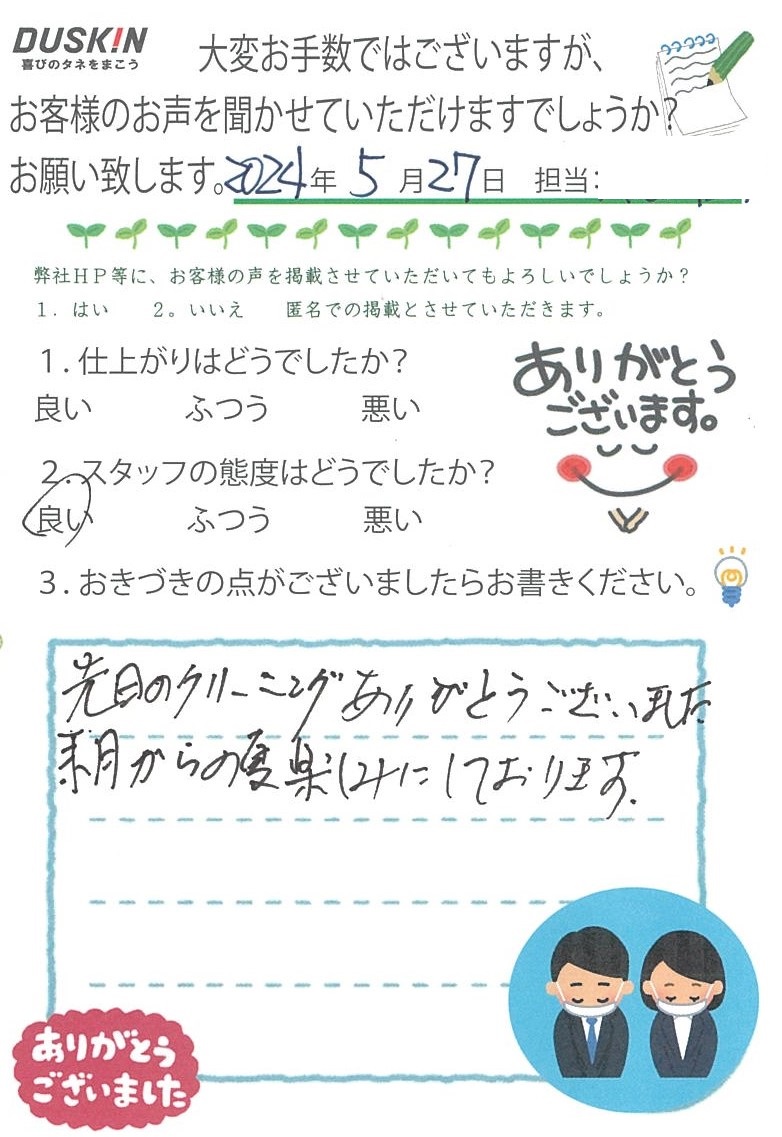 DUSKIN
喜びのタネをまこう
大変お手数ではございますが、
お客様のお声を聞かせていただけますでしょうか？
お願い致します。2024年 5月27日 担当：
弊社ＨＰ等に、お客様の声を掲載させていただいてもよろしいでしょうか？
１．はい ２。いいえ 匿名での掲載とさせていただきます。
１．仕上がりはどうでしたか？
良い ふつう 悪い
ありがとう
ございます。
２．スタッフの態度はどうでしたか？
良い ふつう 悪い
３．おきづきの点がございましたらお書きください。
先日のクリーニングありがとうございました
来月からの夏楽しみにしております.
ありがとう
ございました